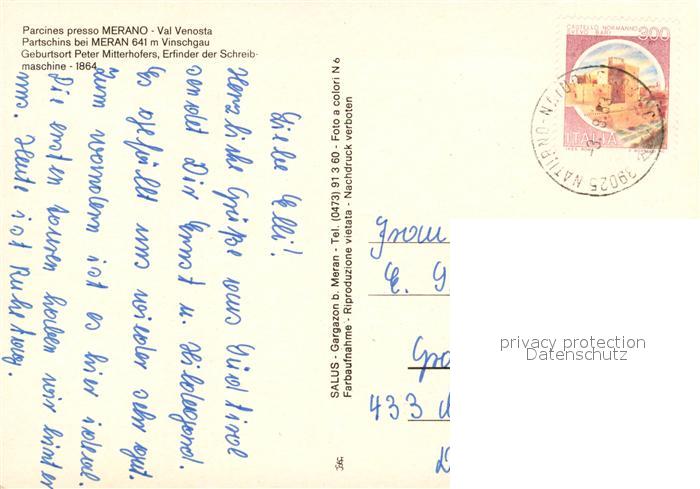 Parcines presso MERANO - Val Venosta
Partschins bei MERAN 641 m Vinschgau
Geburtsort Peter Mitterhofers, Erfinder der Schreib-
maschine - 1864
Liebe Elli!
Herzliche Grüße aus Südtirol
sendet Dir Ernst u. Hildegard.
Es gefällt uns wieder sehr gut.
Zum wandern ist es hier ideal.
Die ersten Touren haben wir hinter
uns. Heute ist Ruhetag.
SALUS - Gargazon b. Meran - Tel. (0473) 91 3 60 - Foto a colori N 6
Farbaufnahme - Riproduzione vietata - Nachdruck verboten
CASTELLO NORMANNO
SVEVO BARI
300
ITALIA
39025 NATURNO-NATURNS
Frau
E. G.
433
privacy protection
Datenschutz